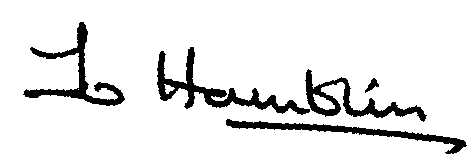 Jo Hamblin